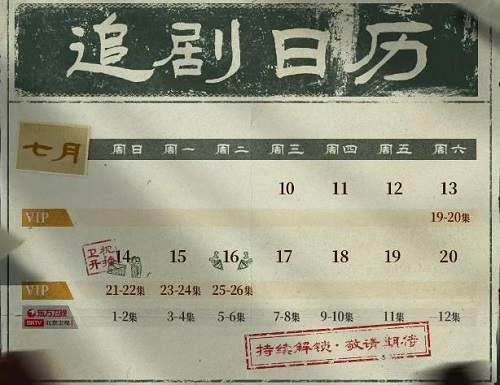 追剧日历
七月 周日 周一 周二 周三 周四 周五 周六
10 11 12 13
VIP 19-20集
卫视开播 14 15 16 17 18 19 20
VIP 21-22集 23-24集 25-26集
东方卫视 BRTV 北京卫视 1-2集 3-4集 5-6集 7-8集 9-10集 11集 12集
持续解锁·敬请期待